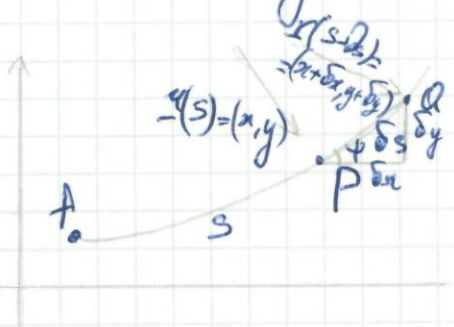 r(s+δs)=
=(x+δx,y+δy)
r(s)=(x,y)
Q
ψ δs δy
P δx
A
s